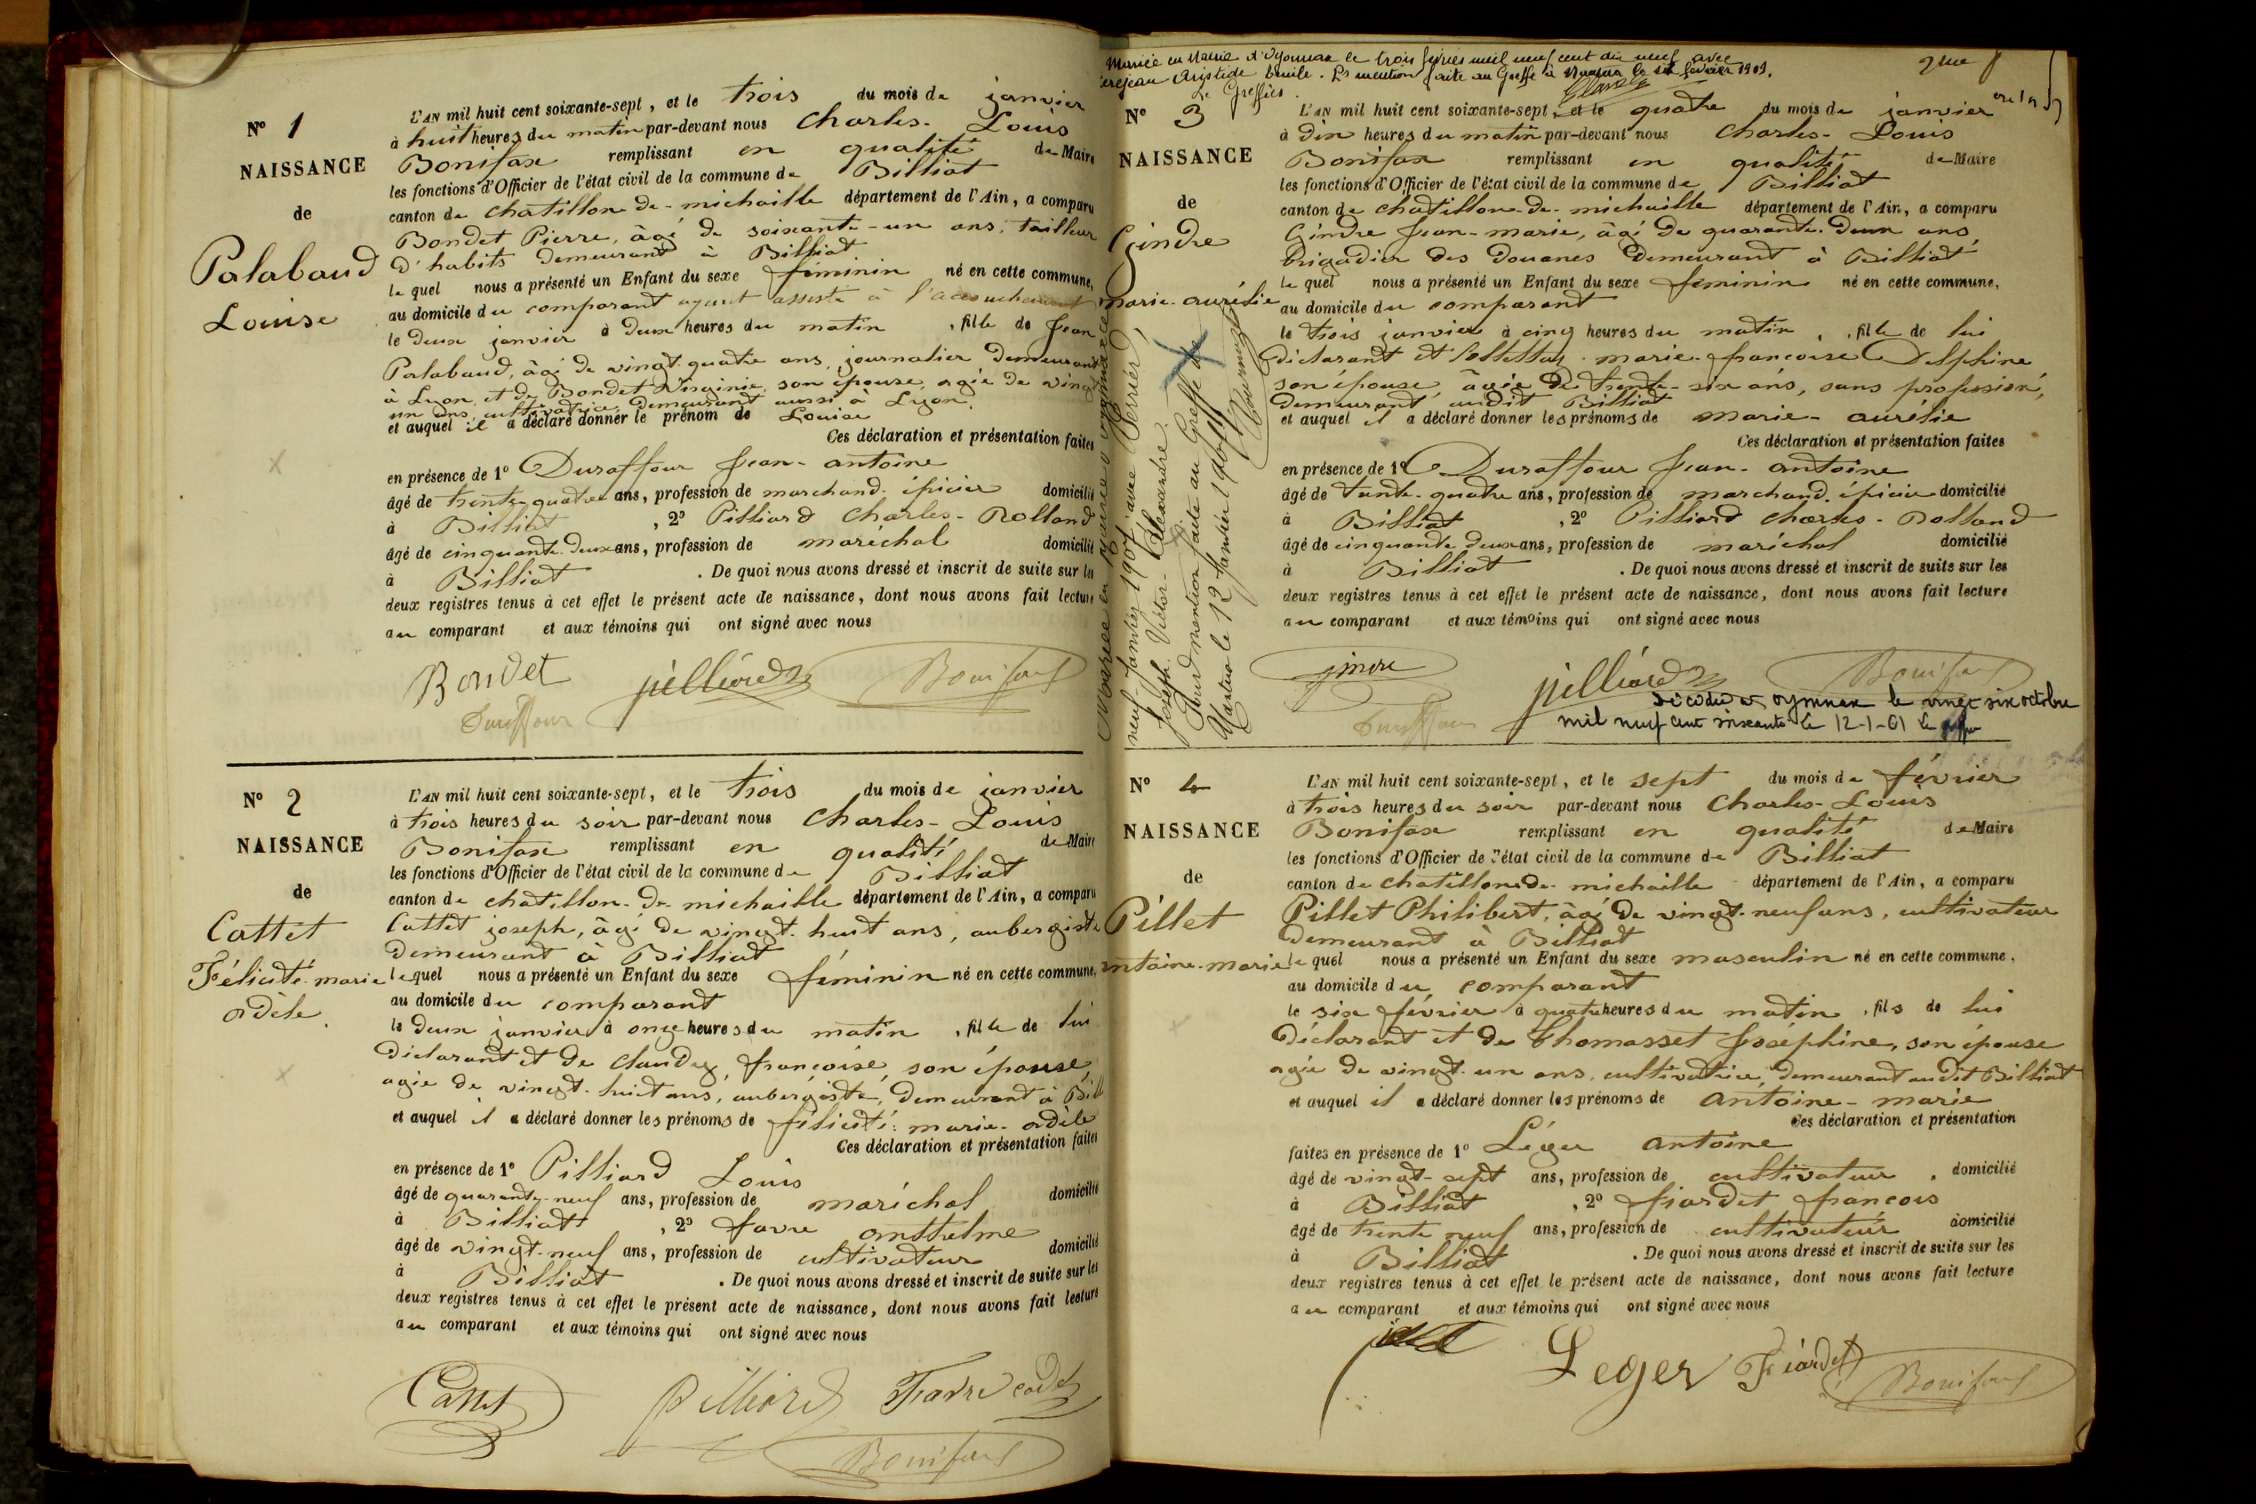 N° 1
NAISSANCE
de
Palabaud
Louise
L'AN mil huit cent soixante-sept, et le trois du mois de janvier
à huit heures du matin par-devant nous Charles-Louis
Bonifax remplissant en qualité de Maire
les fonctions d'Officier de l'état civil de la commune de Billiat
canton de chatillon-de-michaille département de l'Ain, a comparu
Bondet Pierre, âgé de soixante-un ans, tailleur
d'habits demeurant à Billiat
le quel nous a présenté un Enfant du sexe féminin né en cette commune,
au domicile du comparant ayant assisté à l'accouchement
le deux janvier à deux heures du matin, fille de Jean
Palabaud, âgé de vingt-quatre ans, journalier demeurant
à Lyon, et de Bondet Virginie, son épouse, agée de vingt
un ans, cultivatrice, demeurant aussi à Lyon.
et auquel il a déclaré donner le prénom de Louise
Ces déclaration et présentation faites
en présence de 1° Duraffour Jean-antoine
âgé de trente-quatre ans, profession de marchand épicier domicilié
à Billiat, 2° Pilliard Charles-Rolland
âgé de cinquante-deux ans, profession de maréchal domicilié
à Billiat. De quoi nous avons dressé et inscrit de suite sur les
deux registres tenus à cet effet le présent acte de naissance, dont nous avons fait lecture
au comparant et aux témoins qui ont signé avec nous
Bondet pilliard Bonifax
Duraffour
N° 2
NAISSANCE
de
Cattet
Félicité-marie
adèle
L'AN mil huit cent soixante-sept, et le trois du mois de janvier
à trois heures du soir par-devant nous Charles-Louis
Bonifax remplissant en qualité de Maire
les fonctions d'Officier de l'état civil de la commune de Billiat
canton de chatillon-de-michaille département de l'Ain, a comparu
Cattet joseph, âgé de vingt-huit ans, aubergiste
demeurant à Billiat
lequel nous a présenté un Enfant du sexe féminin né en cette commune,
au domicile du comparant
le deux janvier à onze heures du matin, fille de lui
déclarant et de françoise, son épouse
agée de vingt-huit ans, aubergiste, demeurant à Bill
et auquel il a déclaré donner les prénoms de félicité-marie-adèle
Ces déclaration et présentation faites
en présence de 1° Pilliard Louis
âgé de quarante-neuf ans, profession de maréchal domicilié
à Billiat, 2° favre anthelme
âgé de vingt-neuf ans, profession de cultivateur domicilié
à Billiat. De quoi nous avons dressé et inscrit de suite sur les
deux registres tenus à cet effet le présent acte de naissance, dont nous avons fait lecture
au comparant et aux témoins qui ont signé avec nous
Cattet Pilliard Favre cadet
Bonifax
Mariée en Mairie d'Oyonnax le trois février mil neuf cent dix neuf avec
Aristide Emile. Pr mention faite au Greffe à Nantua le février 1919.
Le Greffier
N° 3
NAISSANCE
de
Gindre
marie-aurélie
Mariée en Mairie d'Oyonnax le
neuf Janvier 1904 avec Perrier
Joseph Victor Alexandre.
Pour mention faite au Greffe de
Nantua le 12 Janvier 1904
L'AN mil huit cent soixante-sept, et le quatre du mois de janvier
à dix heures du matin par-devant nous Charles-Louis
Bonifax remplissant en qualité de Maire
les fonctions d'Officier de l'état civil de la commune de Billiat
canton de chatillon-de-michaille département de l'Ain, a comparu
Gindre Jean-marie, âgé de quarante-deux ans
brigadier des douanes demeurant à Billiat
le quel nous a présenté un Enfant du sexe féminin né en cette commune,
au domicile du comparant
le trois janvier à cinq heures du matin, fille de lui
déclarant et marie-françoise Delphine
son épouse, âgée de trente-six ans, sans profession,
demeurant audit Billiat
et auquel il a déclaré donner les prénoms de marie-aurélie
Ces déclaration et présentation faites
en présence de 1° Duraffour Jean-antoine
âgé de trente-quatre ans, profession de marchand épicier domicilié
à Billiat, 2° Pilliard charles-Rolland
âgé de cinquante deux ans, profession de maréchal domicilié
à Billiat. De quoi nous avons dressé et inscrit de suite sur les
deux registres tenus à cet effet le présent acte de naissance, dont nous avons fait lecture
au comparant et aux témoins qui ont signé avec nous
gindre pilliard Bonifax
Duraffour
Décédée à oyonnax le vingt six octobre
mil neuf cent soixante le 12-1-61 Le greffier
N° 4
NAISSANCE
de
Pillet
antoine-marie
L'AN mil huit cent soixante-sept, et le sept du mois de février
à trois heures du soir par-devant nous Charles-Louis
Bonifax remplissant en qualité de Maire
les fonctions d'Officier de l'état civil de la commune de Billiat
canton de chatillon-de-michaille département de l'Ain, a comparu
Pillet Philibert, âgé de vingt-neuf ans, cultivateur
demeurant à Billiat
le quel nous a présenté un Enfant du sexe masculin né en cette commune,
au domicile du comparant
le six février à quatre heures du matin, fils de lui
déclarant et de Thomasset Joséphine, son épouse
agée de vingt-un ans, cultivatrice, demeurant audit Billiat
et auquel il a déclaré donner les prénoms de antoine-marie
Ces déclaration et présentation
faites en présence de 1° Léger antoine
âgé de vingt-sept ans, profession de cultivateur, domicilié
à Billiat, 2° fiardet françois
âgé de trente neuf ans, profession de cultivateur domicilié
à Billiat. De quoi nous avons dressé et inscrit de suite sur les
deux registres tenus à cet effet le présent acte de naissance, dont nous avons fait lecture
au comparant et aux témoins qui ont signé avec nous
pillet Leger Fiardet Bonifax